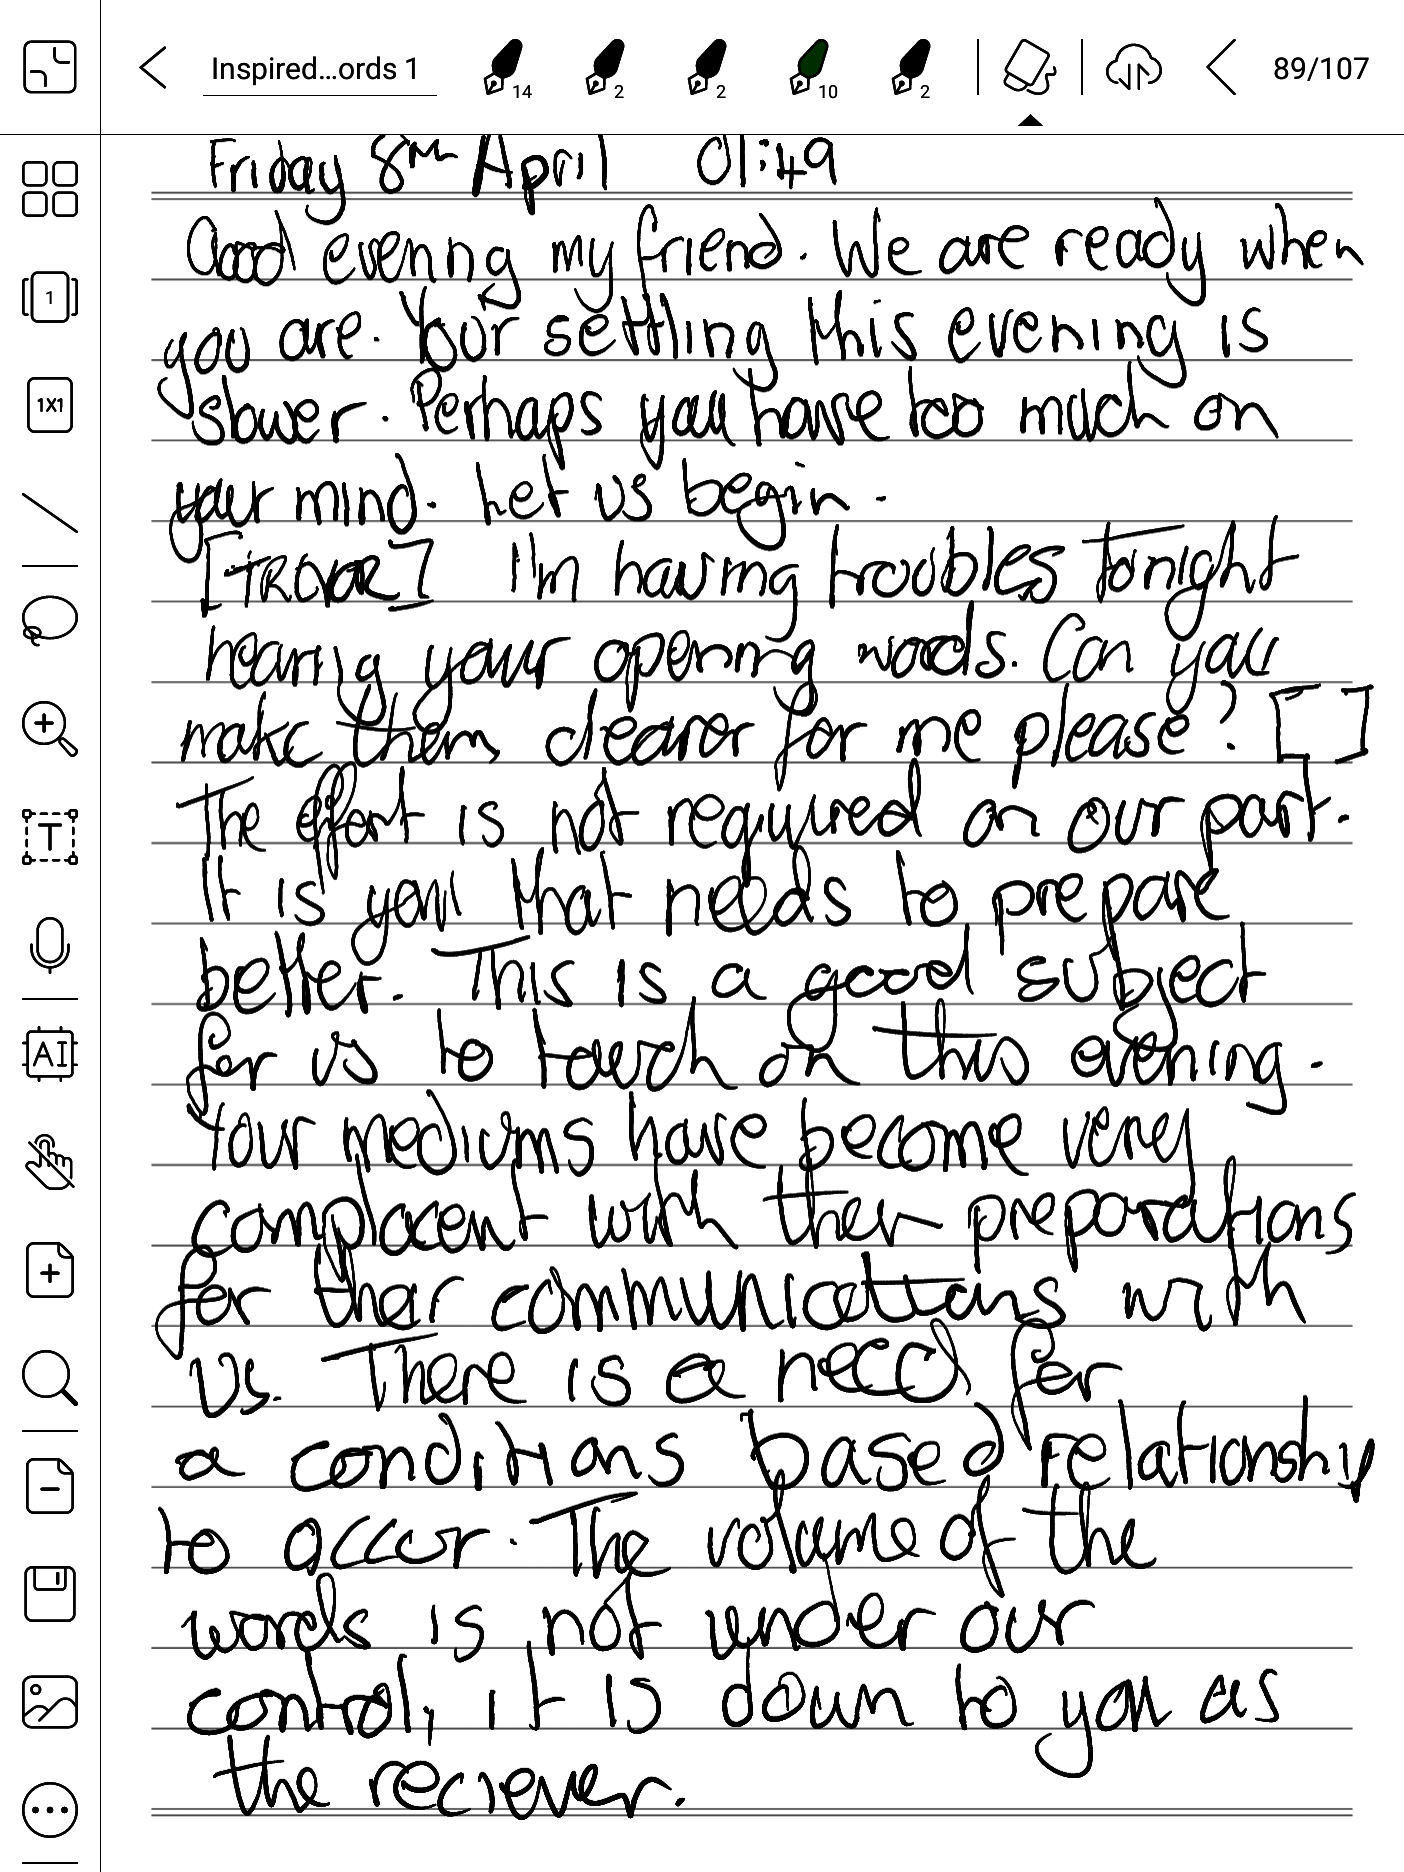 Inspired...ords 1 14 2 2 10 2 89/107
Friday 8th April 01:49
Good evening my friend. We are ready when
1
you are. Your settling this evening is
1X1
slower. Perhaps you have too much on
your mind. Let us begin.
[TREVOR] I'm having troubles tonight
hearing your opening words. Can you
make them clearer for me please? [ ]
The effort is not requiured on our part.
T
It is you that needs to prepare
better. This is a good subject
for us to touch on this evening.
AI
Your mediums have become very
complacent with their preparations
for their communications with
us. There is a need for
a conditions based relationship
to occur. The volume of the
words is not under our
control, it is down to you as
the reciever.